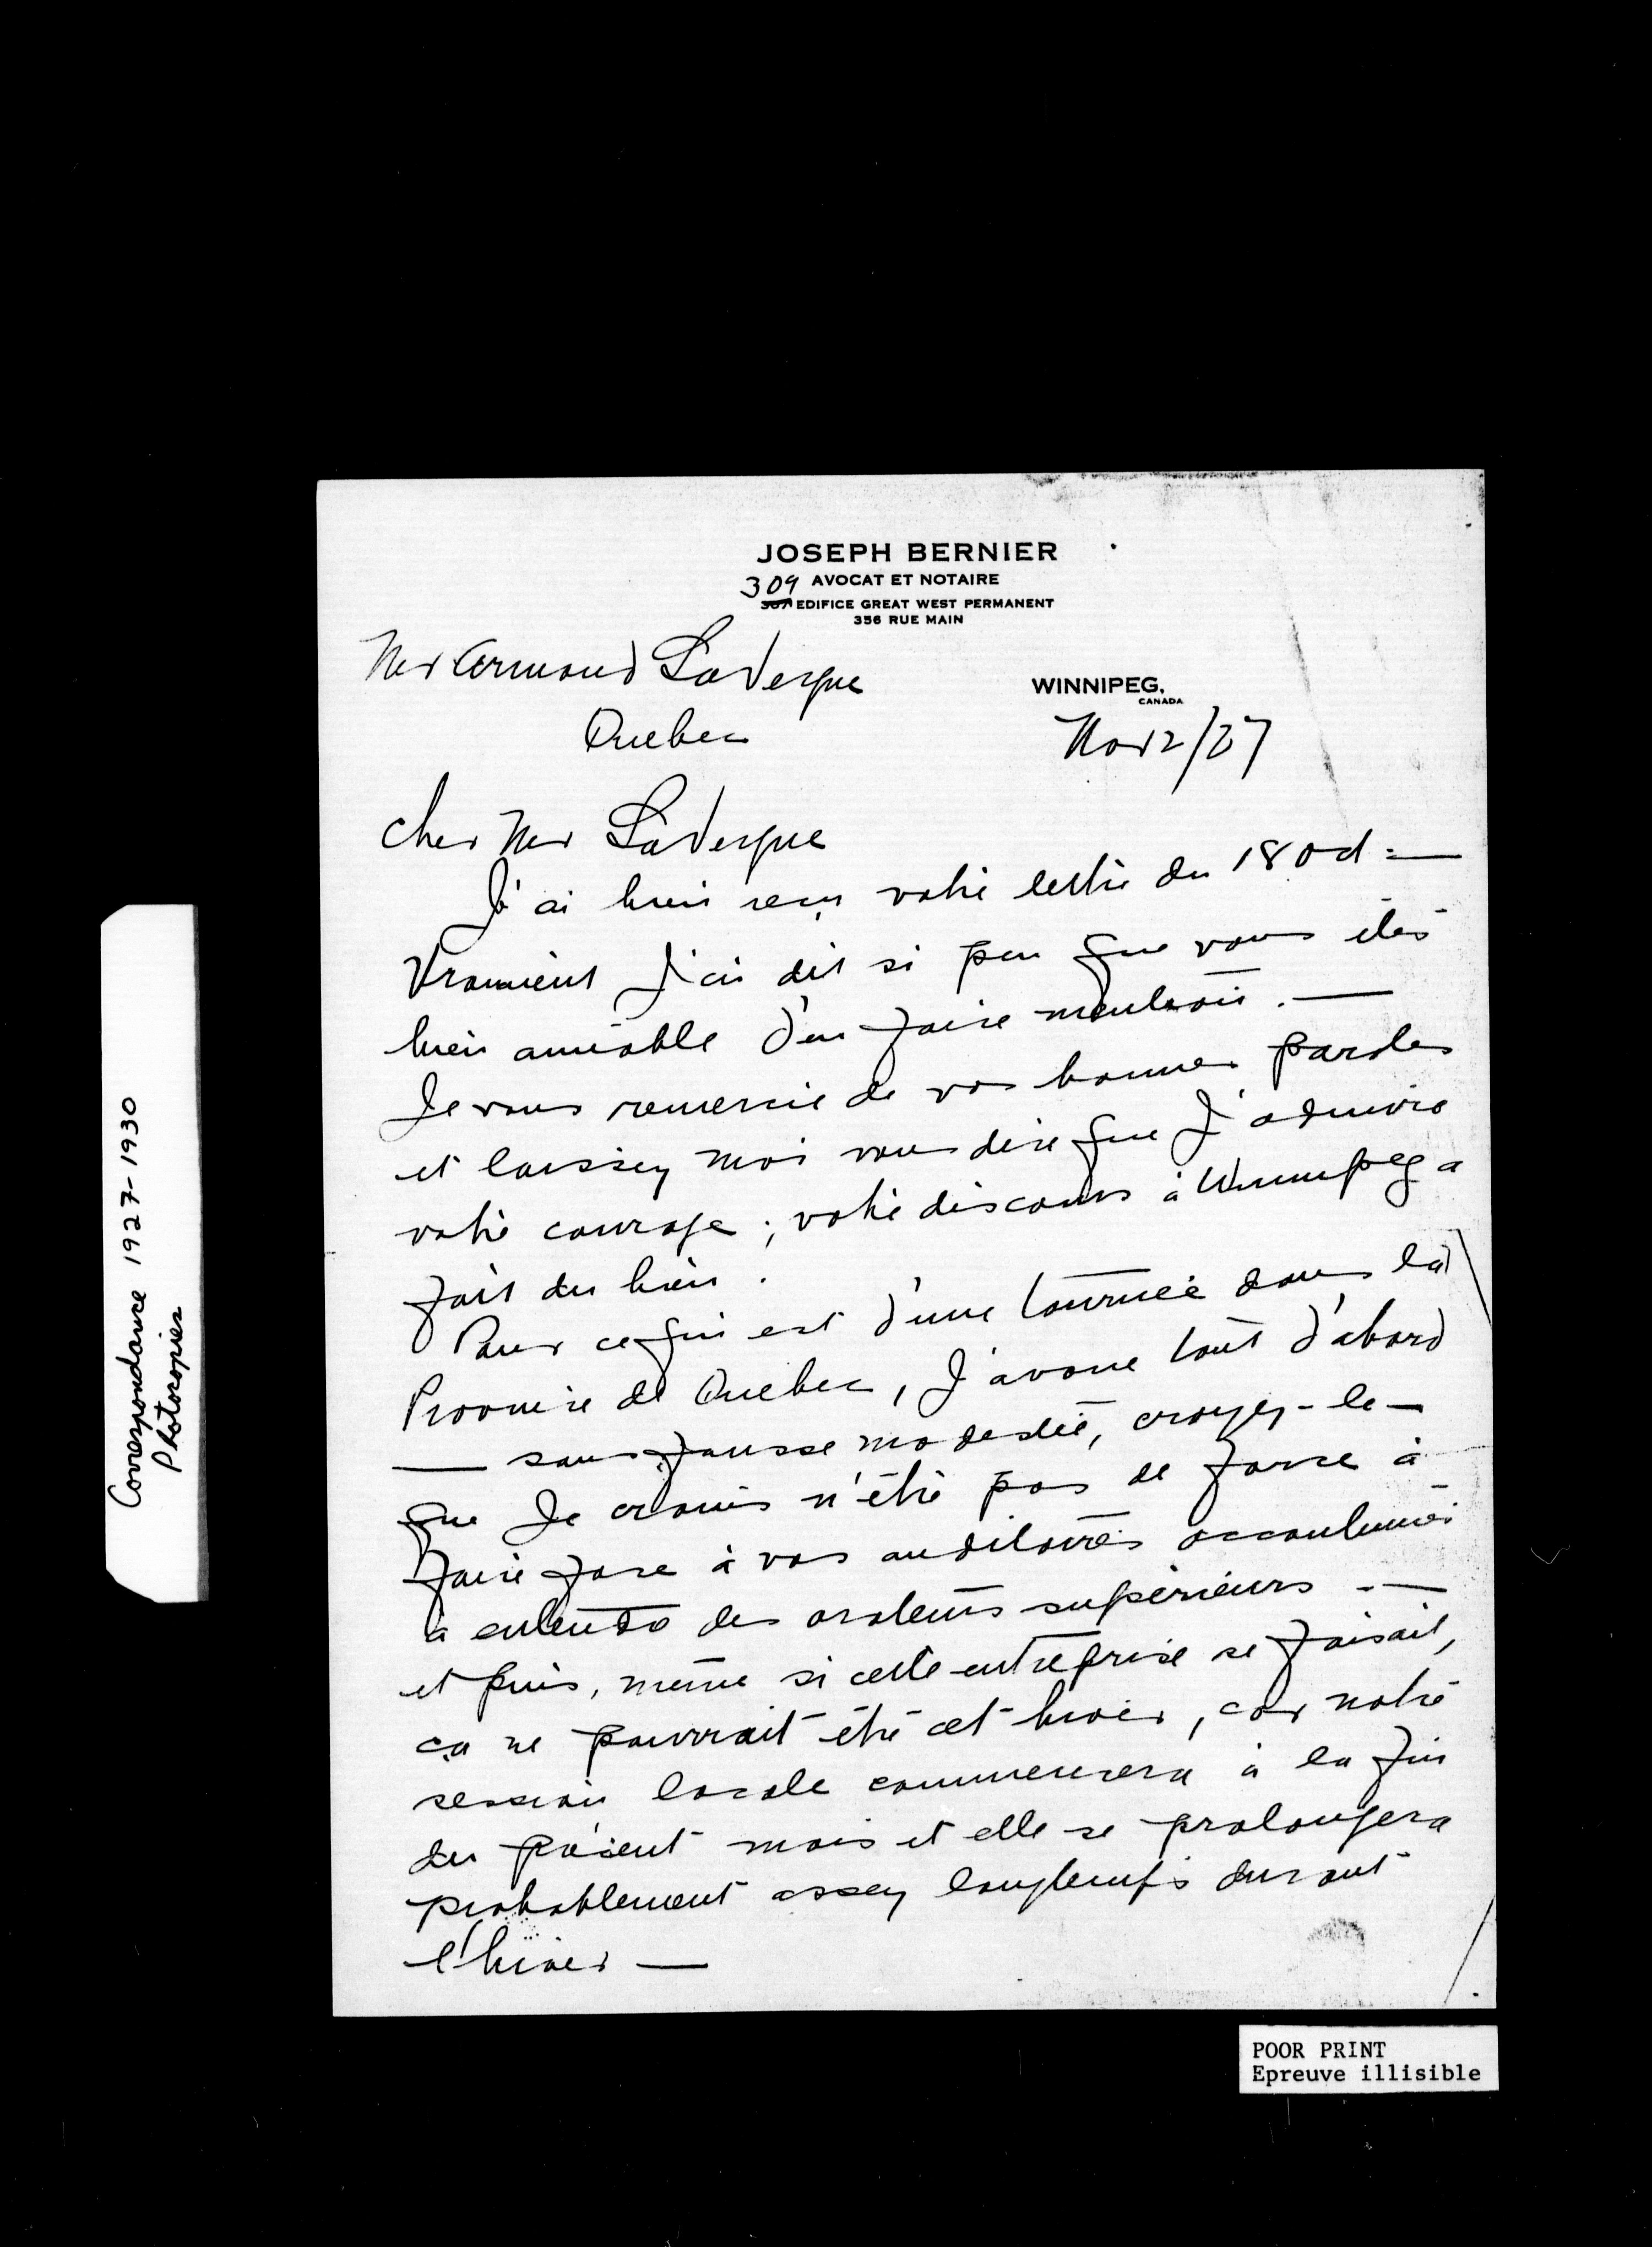 JOSEPH BERNIER
AVOCAT ET NOTAIRE
309 EDIFICE GREAT WEST PERMANENT
356 RUE MAIN
Mr Armand LaVergne
Quebec
WINNIPEG,
CANADA
Nov 2/27
Cher Mr LaVergne
J'ai bien reçu votre lettre du 18 oct =—
Vraiment j'ai dit si peu que vous êtes
bien aimable d'en faire mention. —
Je vous remercie de vos bonnes paroles
et laissez moi vous dire que j'admire
votre courage ; votre discours à Winnipeg a
fait du bien .
Pour ce qui est d'une tournée dans la
Province de Quebec, j'avoue tout d'abord
— sans fausse modestie, croyez-le —
que je crains n'être pas de force à
faire face à vos auditoires accoutumés
à entendre des orateurs supérieurs . —
et puis, même si cette entreprise se faisait,
ça ne pourrait être cet hiver, car notre
session locale commencera à la fin
du présent mois et elle se prolongera
probablement assez longtemps durant
l'hiver —
Correspondance 1927-1930
Photocopies
POOR PRINT
Epreuve illisible